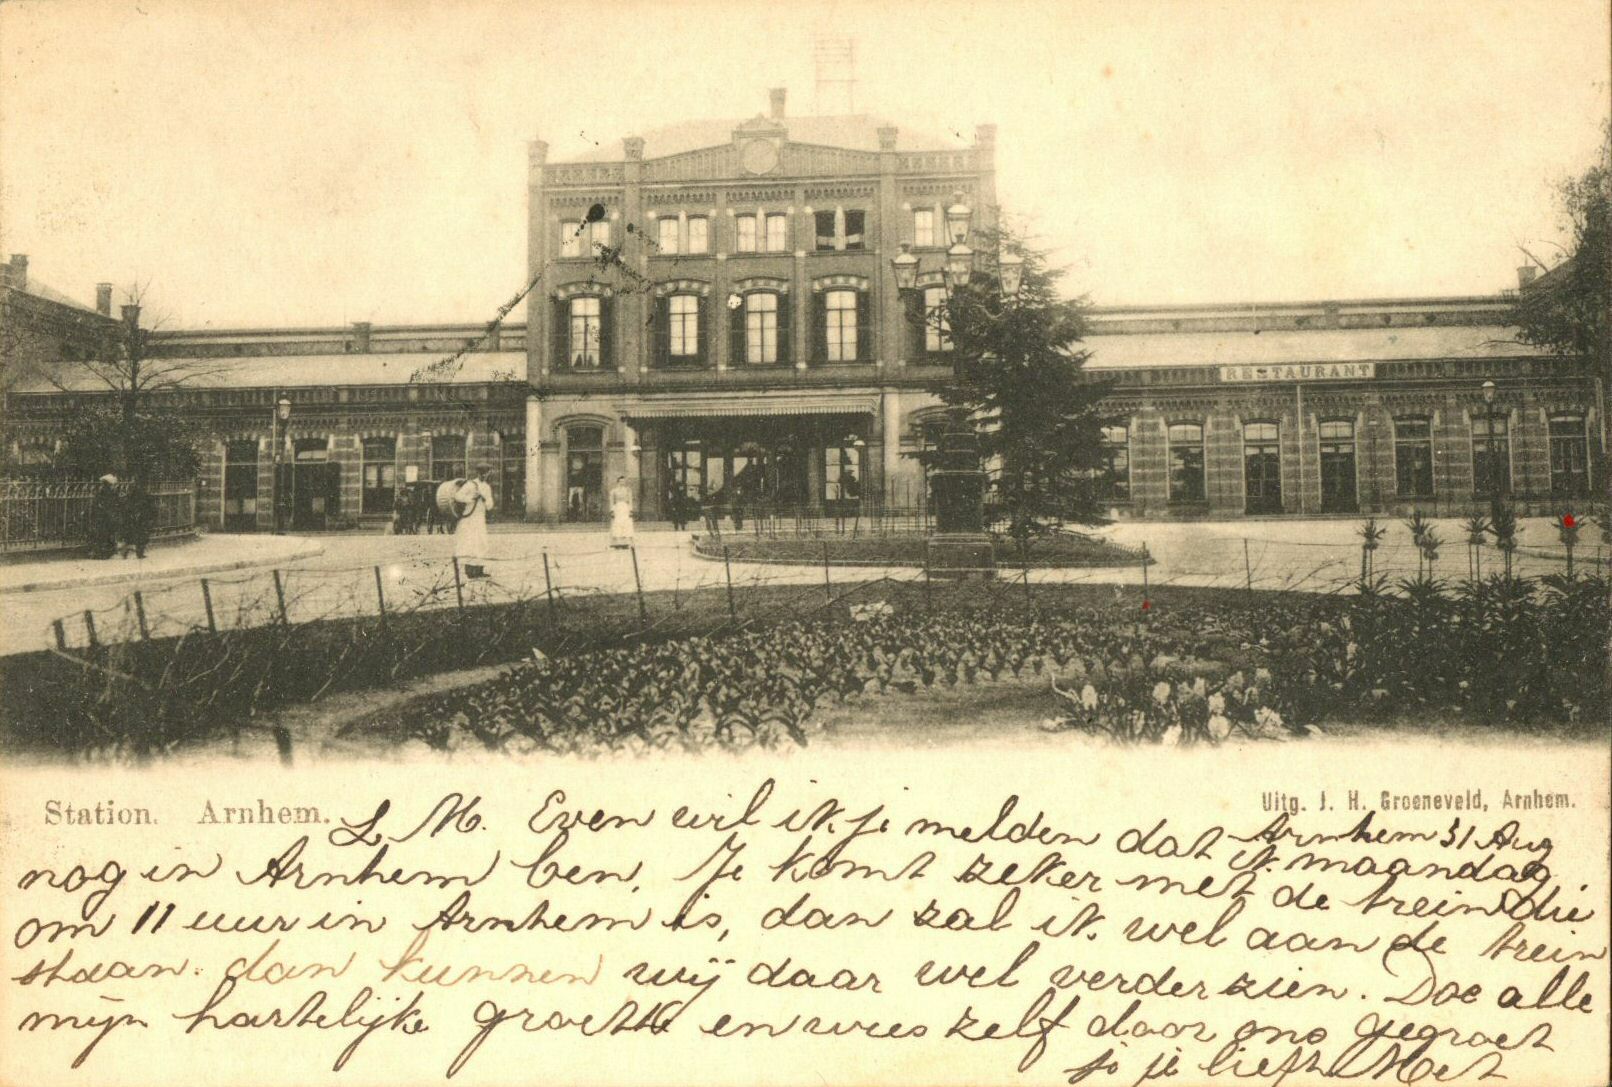 RESTAURANT
Station. Arnhem.
Uitg. J. H. Groeneveld, Arnhem.
Arnhem 31 Aug
L M. Even wil ik je melden dat ik maandag
nog in Arnhem ben. Je komt zeker met de trein die
om 11 uur in Arnhem is, dan zal ik wel aan de trein
staan. dan kunnen wij daar wel verder zien. Doe alle
mijn hartelijke groette en wees zelf door ons gegroet
je liefh